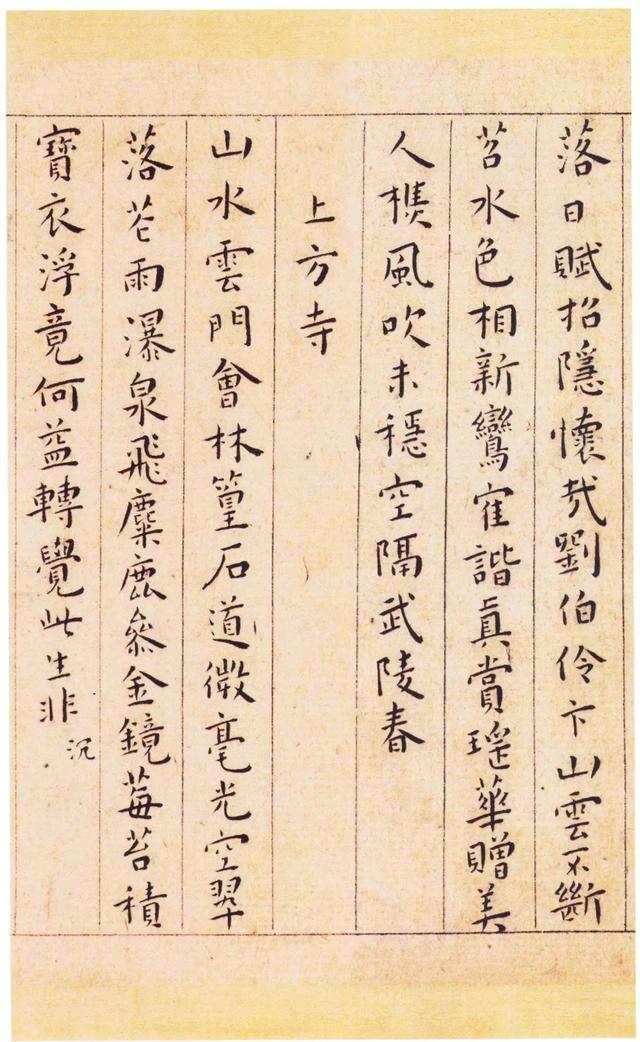 落日賦招隱懷哉劉伯伶卞山雲不斷
苕水色相新鸞寉諧真賞瑤華贈美
人榜風吹未穩空隔武陵春
上方寺
山水雲門會林篁石道微毫光空翠
落芒雨瀑泉飛麋鹿叅金鏡莓苔積
寶衣浮竟何益轉覺此生非
沉